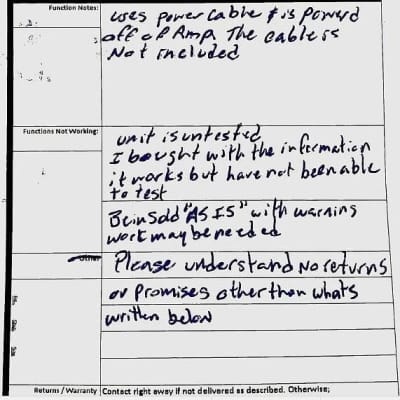 Function Notes:
uses power cable & is powerd
off of Amp. The cable is
Not included
Functions Not Working:
unit is untested
I bought with the information
it works but have not been able
to test
Bein Sold "AS IS" with warning
work may be needed
Other
Please understand No returns
or Promises other then whats
written below
Returns / Warranty
Contact right away if not delivered as described. Otherwise;